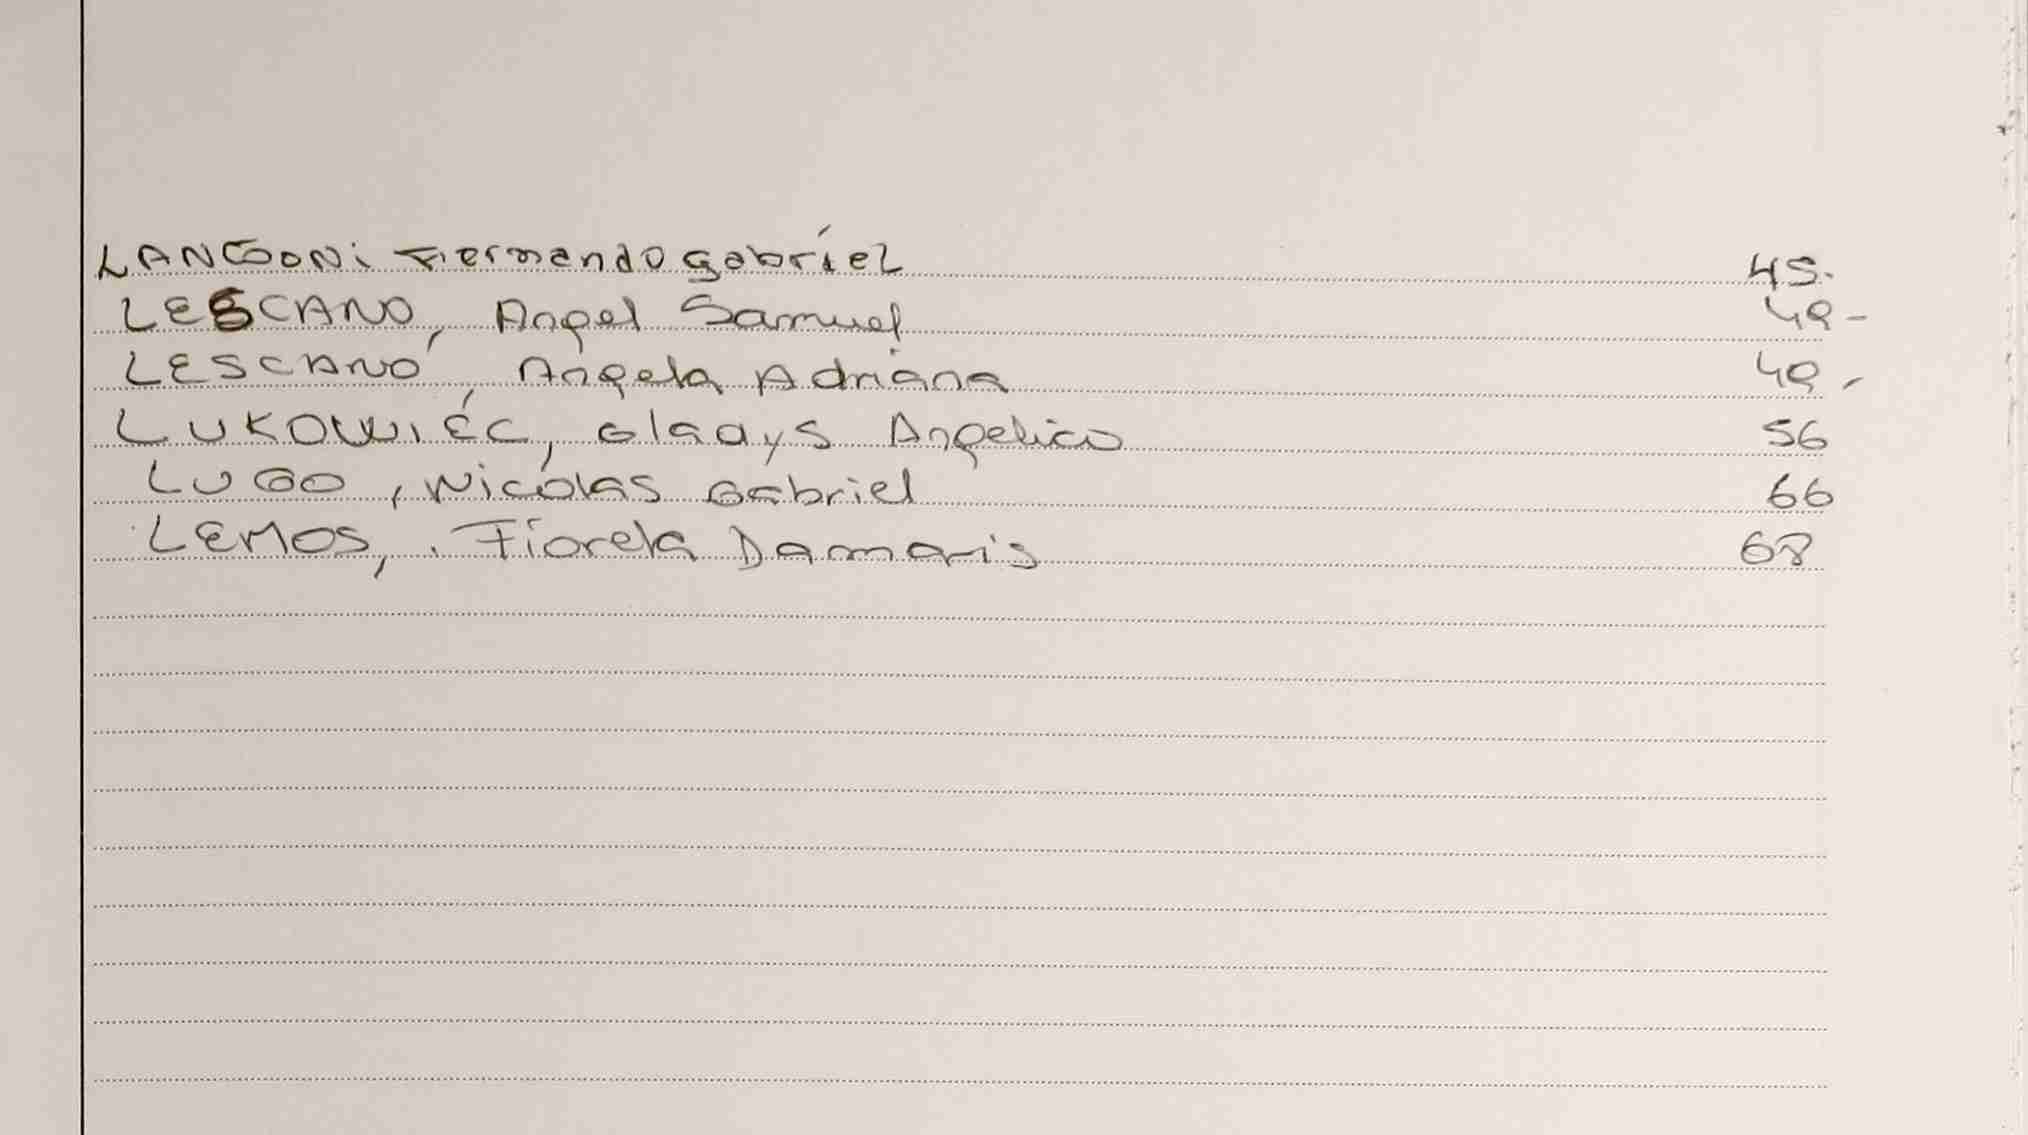 LANGONi Fernando gabríel 45.
LESCANO, Angel Samuel 49-
LESCANO, Angela Adriana 49-
LUKOWIEC, Gladys Angelica 56
LUGO, Nicolas Gabriel 66
LEMOS, Fiorela Damaris 68